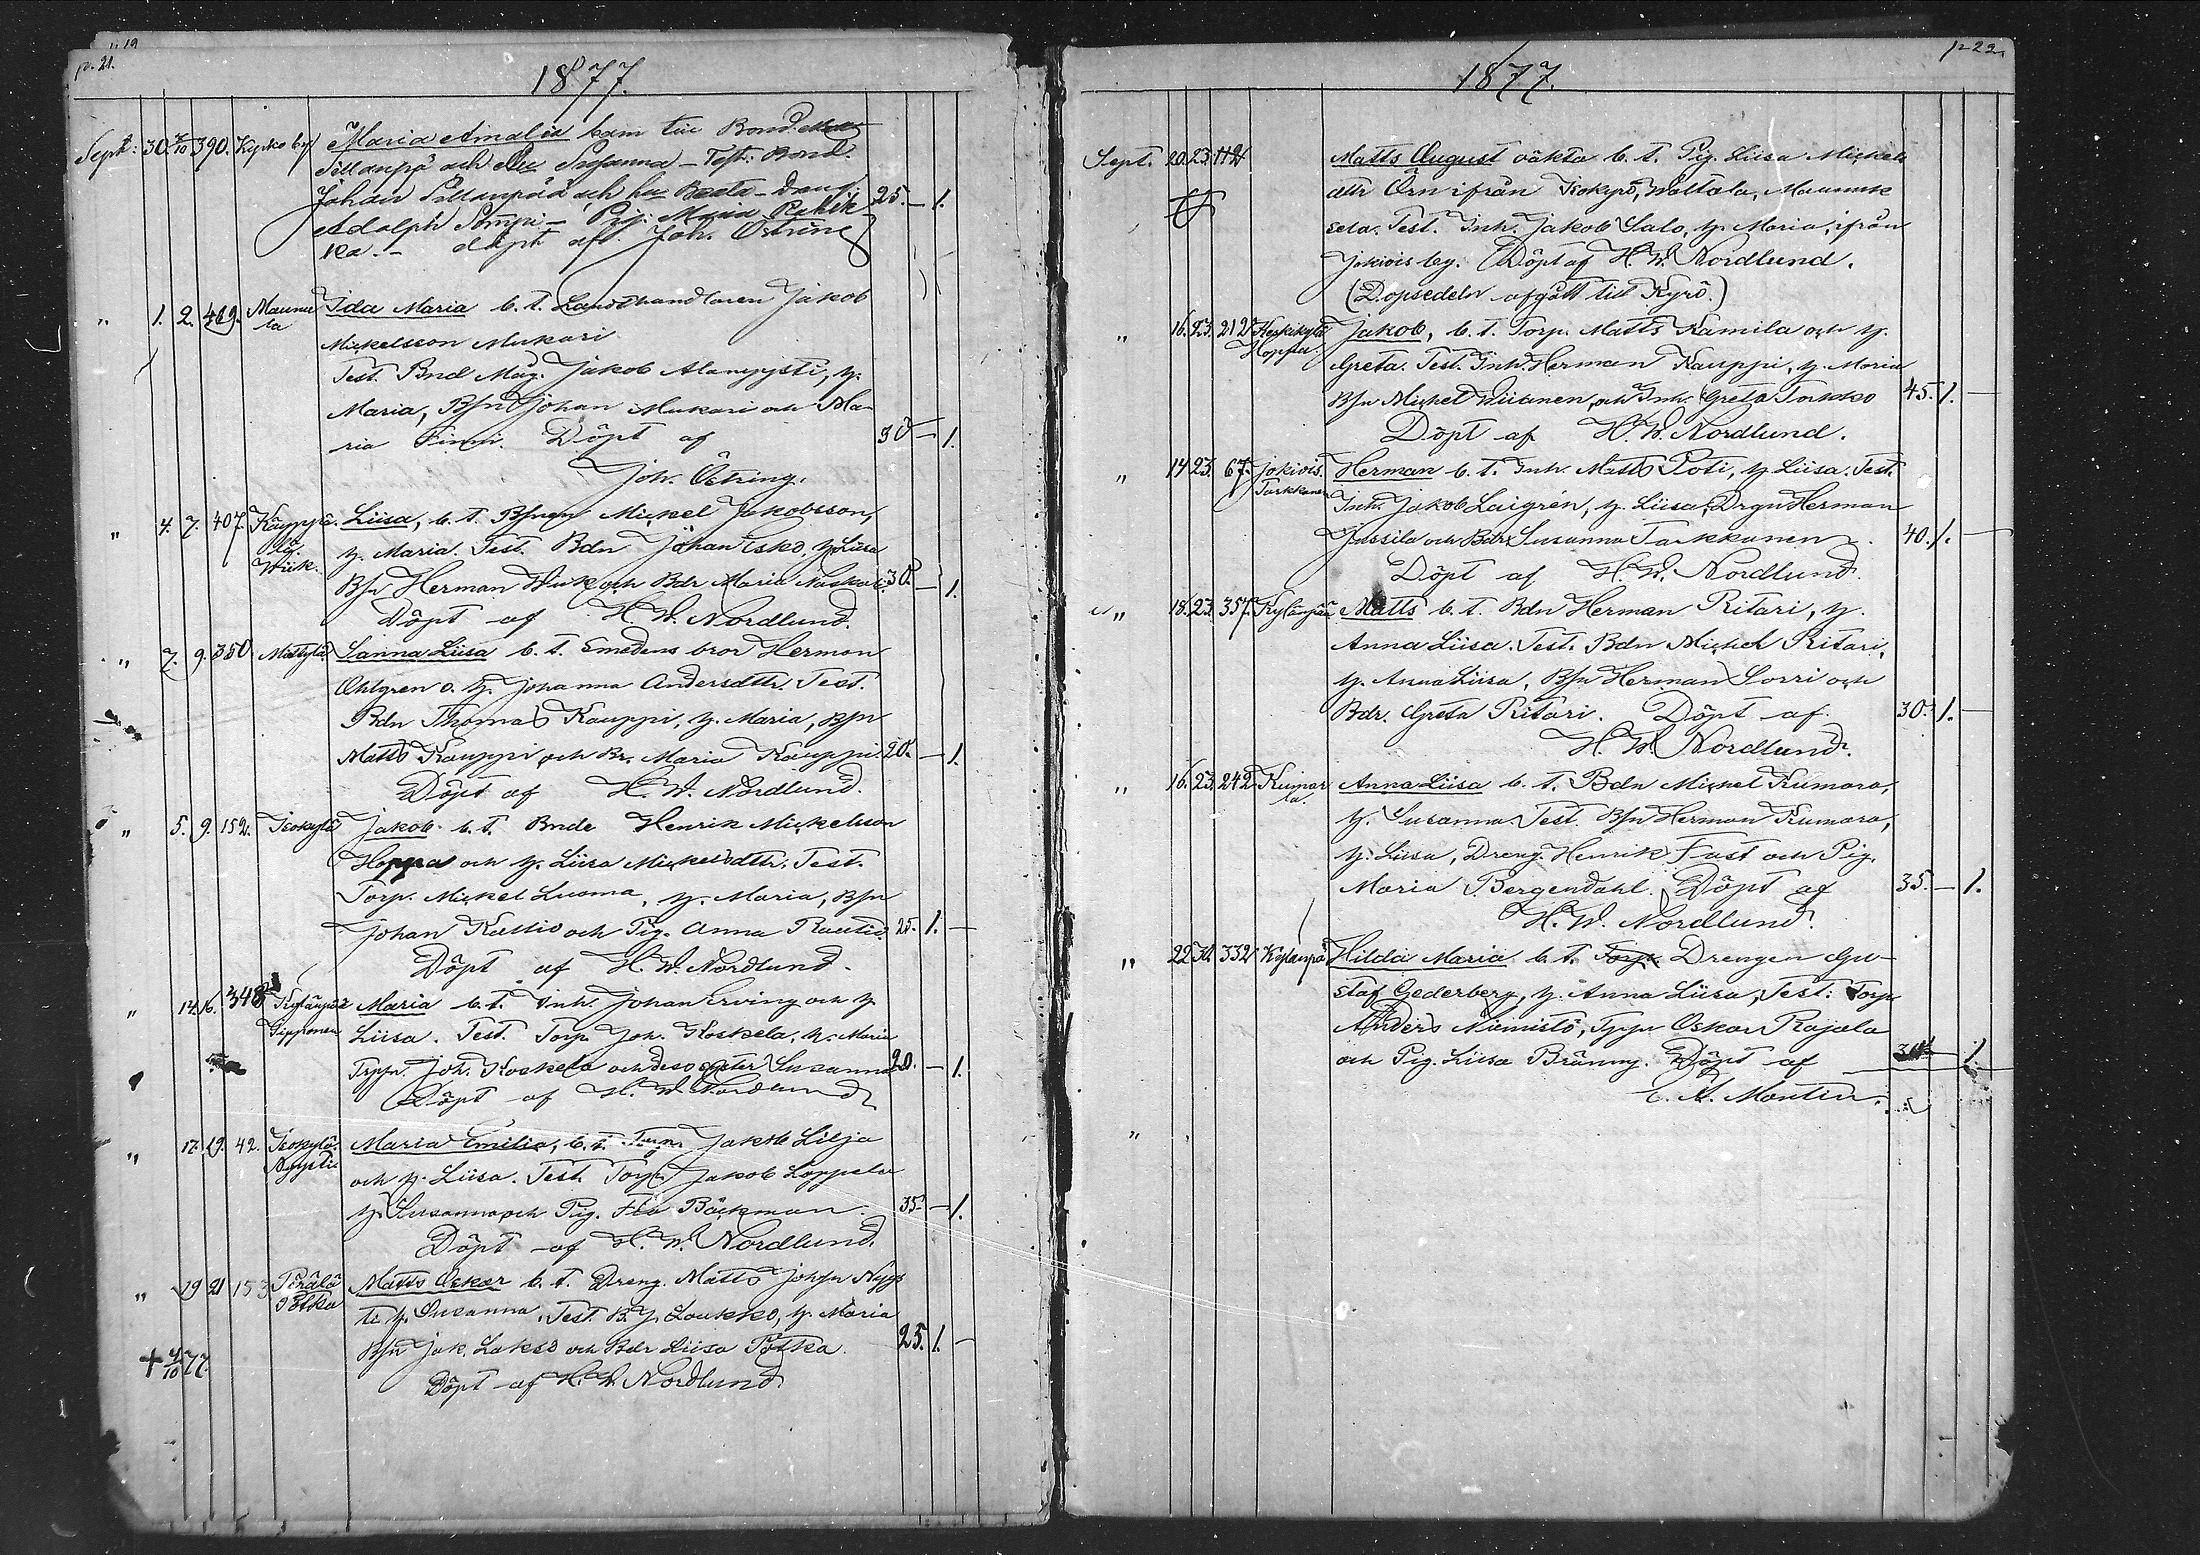 p. 21.
1877.
Sept: 30. 7/10 390. Kyrko by Maria Amalia barn till Bond.
Sillanpä och hu Susanna - Test: Bond.
Johan Sillanpää och hu Beata - Dreng
Adolph Sompi - Pig: Maria 25. - 1.
ka. - döpt af Joh. Östring
" 1. 2. 469. Maunula Ida Maria b. t. Landthandlaren Jakob
Mickelsson Mukari
Test. Bnd Mag. Jakob Alanpysti, h.
Maria, Bsn Johan Mukari och Ma-
ria Finni. Döpt af 30 - 1.
Joh. Östring.
" 4. 7. 407. Kauppi Liisa, b. t. Bsnen Mickel Jakobsson,
lä. h. Maria. Test. Bdn Johan Esko, h. Liisa
Wiik. Bsn Herman Wiik och Bdr Maria Kaskari. 30. - 1.
Döpt af H. W. Nordlund.
" 7. 9. 350 Mattylä Sanna Liisa b. t. Smedens bror Herman
Ohlgren o. h. Johanna Andersdttr. Test.
Bdn Thomas Kauppi, h. Maria, Bsn
Matts Kauppi och Br. Maria Kauppi. 20. - 1.
Döpt af H. W. Nordlund.
" 5. 9. 152. Isokylä Jakob b. t. Bnde Henrik Mickelsson
Hoppa och h. Liisa Mickelsdttr. Test.
Torp. Mickel Luoma, h. Maria, Bsn
Johan Kallio och Pig. Anna Rautio. 25. 1. -
Döpt af H. W. Nordlund.
" 14. 16. 348 Kylänpää Maria b. t. Inh. Johan Erving och h.
Gipponen Liisa. Test. Torp. Joh. Koskela, h. Maria
Trpsn. Joh. Koskela och dess syster Susanna 20. - 1.
Döpt af H. W. Nordlund
" 17. 19. 42. Isokylä Maria Emilia, b. t. Torp. Jakob Lilja
Nyysti och h. Liisa. Test. Torp. Jakob Loppela
h. Susanna och Pig. Fia Bäckman. 35 - 1.
Döpt af H. W. Nordlund.
" 19 21 153 Perälä Matts Oskar b. t. Dreng. Matts Johsn Nyys
Potka ti h. Susanna. Test. B. J. Loukko, h. Maria
Bsn Jak. Lakso och Bdr Liisa Potka. 25. 1. -
+ 4/10 77. Döpt af H. W. Nordlund
p 22.
1877.
Sept. 20. 23. 112 Matts August oäkta b. t. Pig. Liisa Mickels
dttr Örn ifrån Isokyrö, Waltala, Maunuk
sela. Test. Inh. Jakob Salo, h. Maria, ifrån
Jokivis by. Döpt af H. W. Nordlund.
(Dopsedeln afgått till Kyrö.)
" 16. 23. 212 Keskikylä Jakob, b. t. Torp. Matts Kamila och h.
Hoppa. Greta. Test. Inh. Herman Kauppi, h. Maria
Bsn Mickel Wiitanen, och Inh. Greta Torkko 45. 1. -
Döpt af H. W. Nordlund.
" 14 23. 67. Jokivis. Herman b. t. Inh. Matts Poti, h. Liisa. Test.
Tarkkanen Inh. Jakob Laigrén, h. Liisa, Drgn Herman
Jussila och Bdr. Susanna Tarkkanen. 40. 1. -
Döpt af H. W. Nordlund.
" 18. 23. 357. Kylänpää Matts b. t. Bdn Herman Ritari, h.
Anna Liisa. Test. Bdn Mickel Ritari,
h. Anna Liisa, Bsn Herman Sorri och
Bdr. Greta Ritari. Döpt af 30. 1. -
H. W. Nordlund.
" 16. 23. 242 Kuimar Anna Liisa b. t. Bdn Mickel Kumara,
la. h. Susanna. Test. Bsn Herman Kumara,
h. Liisa, Dreng. Henrik Fast och Pig.
Maria Bergendahl. Döpt af 35. - 1.
H. W. Nordlund.
" 22 30. 332 Kylänpä Hilda Maria b. t. Drengen Gu-
staf Cederberg, h. Anna Liisa, Test: Torp
Anders Niemistö, Trpsn Oskar Rajala
och Pig. Liisa Bränny. Döpt af 30 1.
C. A. Montin.
"